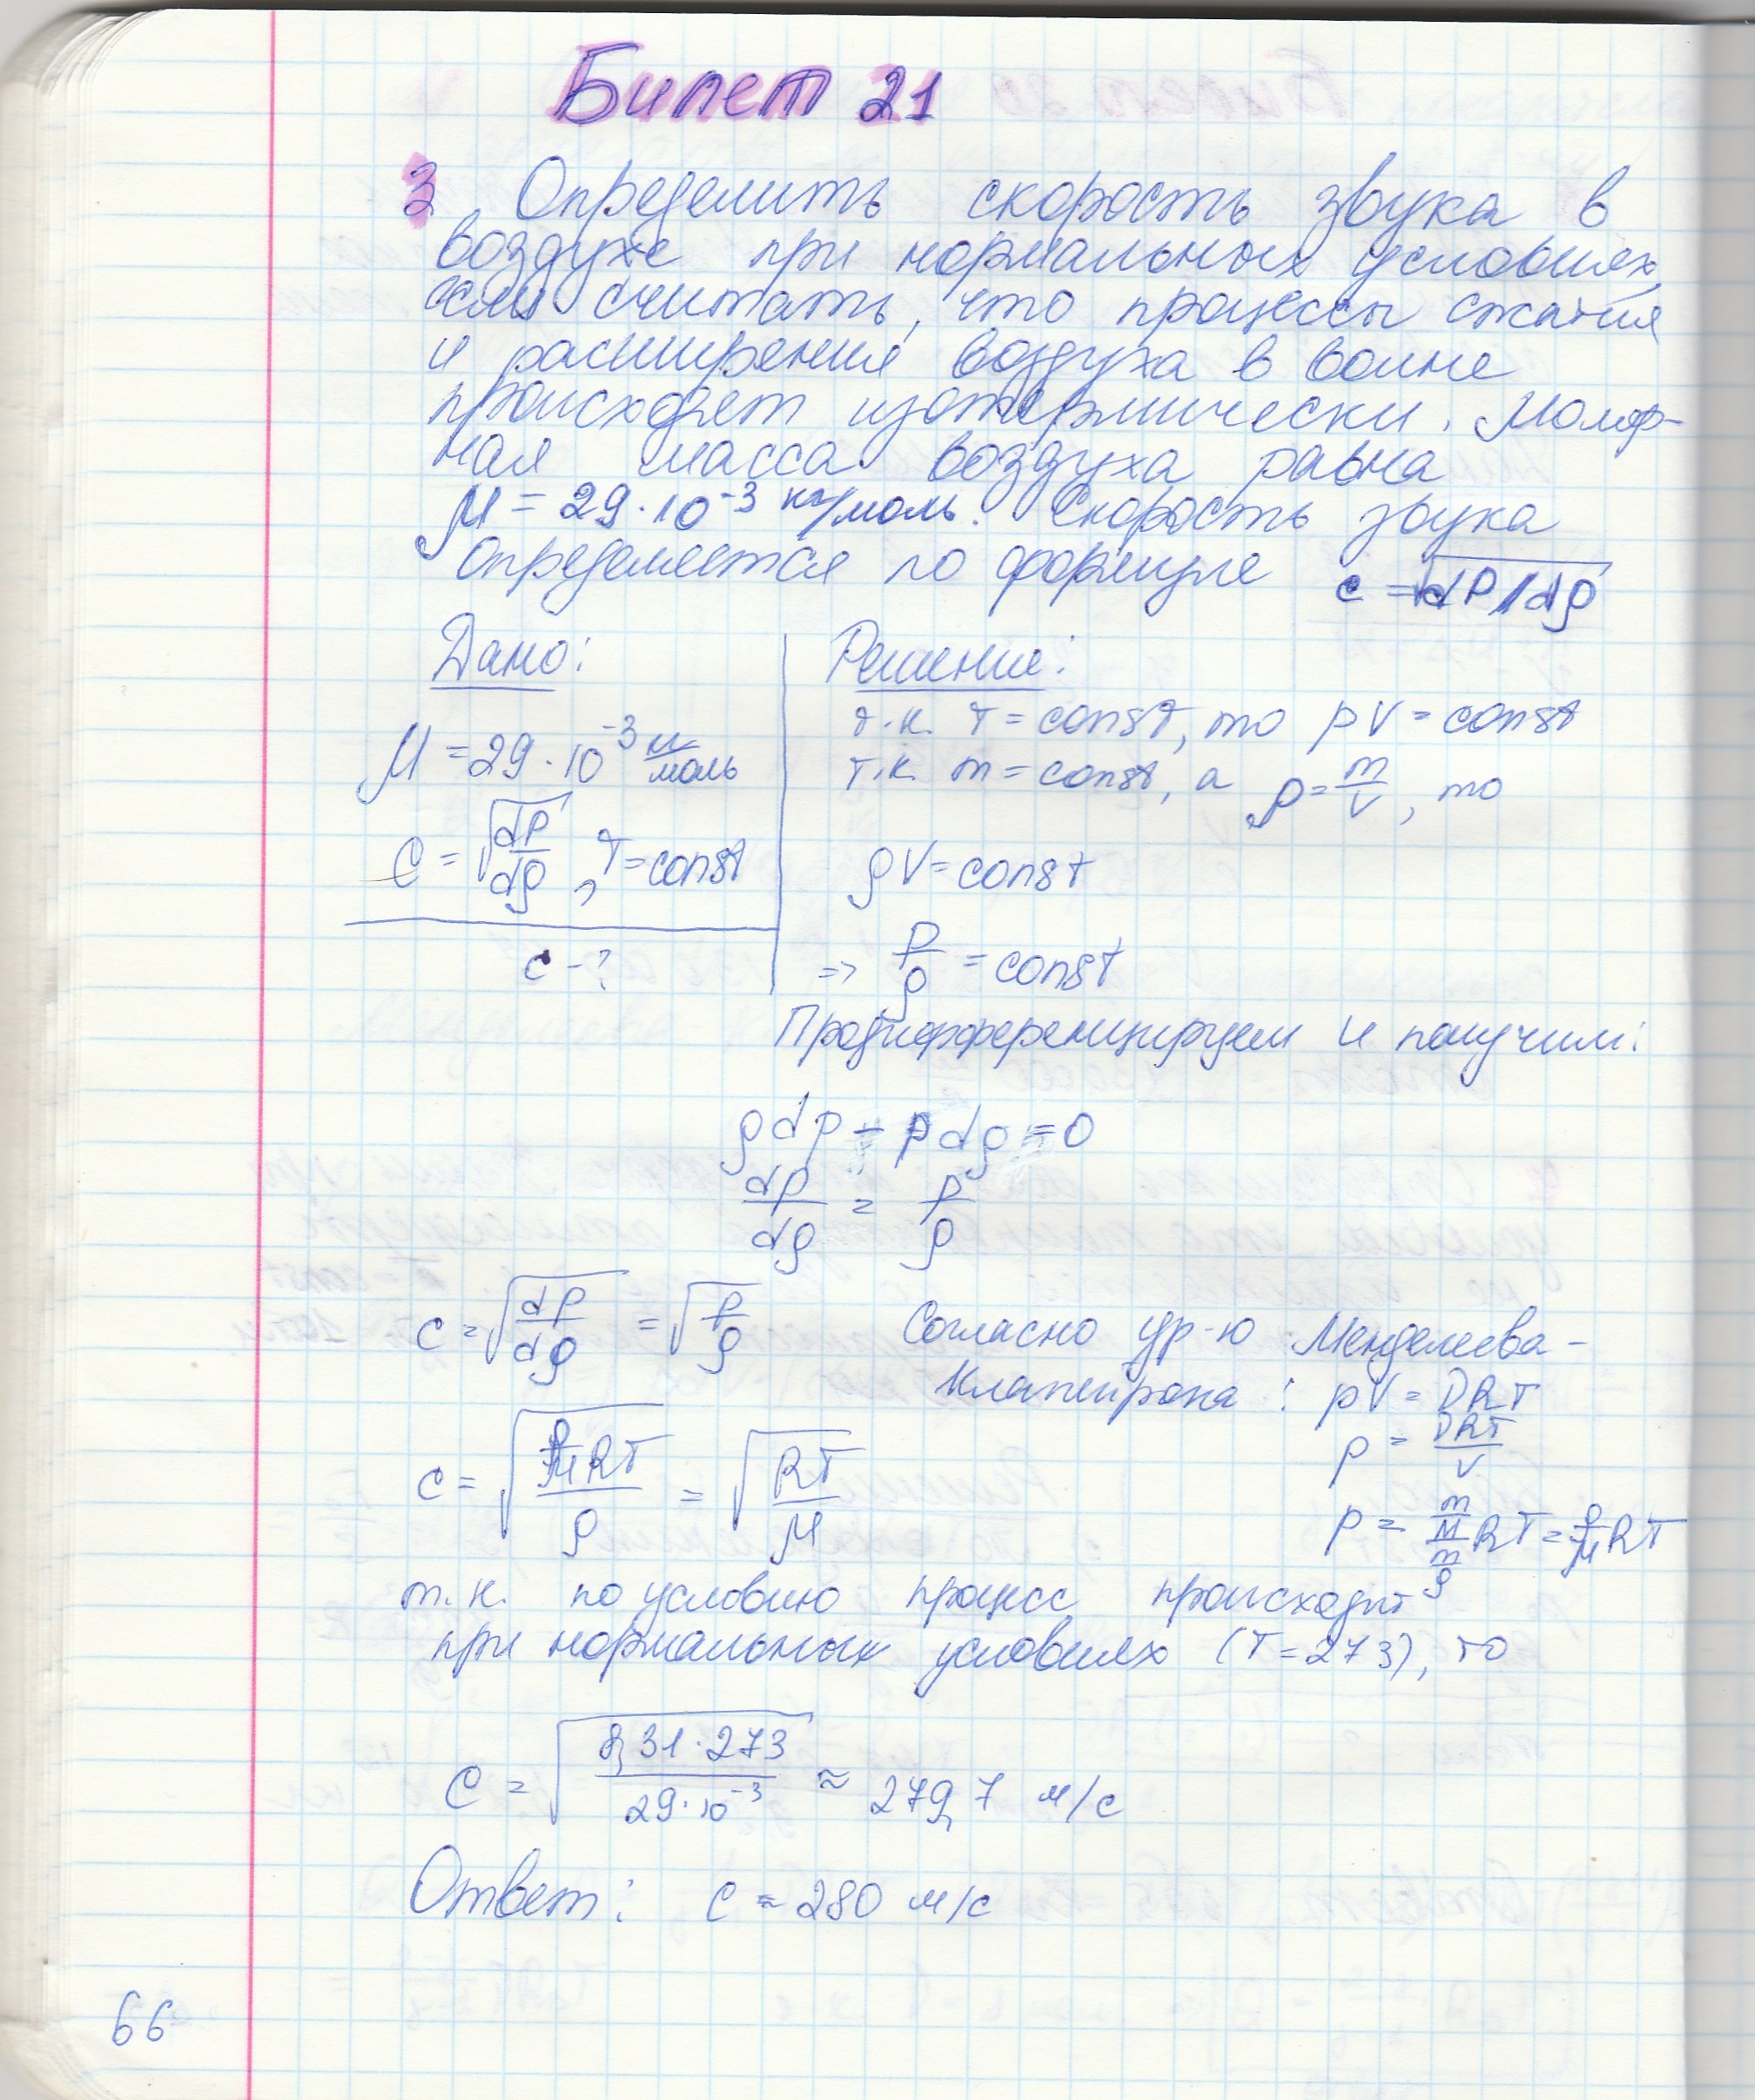 Билет 21
3 Определить скорость звука в
воздухе при нормальных условиях,
если считать, что процессы сжатия
и расширения воздуха в волне
происходят изотермически. Моляр-
ная масса воздуха равна
μ = 29·10⁻³ кг/моль. Скорость звука
определяется по формуле c = √dP/dρ
Дано:
μ = 29·10⁻³ кг/моль
c = √(dp/dρ), T = const
c - ?
Решение:
т.к. T = const, то pV = const
т.к. m = const, а ρ = m/V, то
ρV = const
=> p/ρ = const
Продифференцируем и получим:
ρdp - pdρ = 0
dp/dρ = p/ρ
c = √(dp/dρ) = √(p/ρ)
Согласно ур-ю Менделеева-
Клапейрона: pV = νRT
p = νRT/V
p = (m/M)/(m/ρ) RT = ρ/μ RT
c = √((ρ/μ RT)/ρ) = √(RT/μ)
т.к. по условию процесс происходит
при нормальных условиях (T = 273), то
c = √(8,31·273/(29·10⁻³)) ≈ 279,7 м/с
Ответ: c ≈ 280 м/с
66